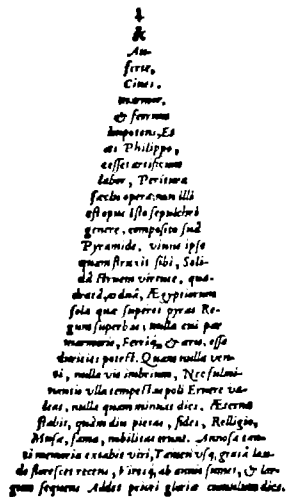 &
Au-
ferte,
Cives,
marmor,
& ferrum
Impotens, Es
at Philippo,
cesset artificum
labor, Peritura
sæclo opera: non illi
est opus Isto sepulchri
genere, composito sud
Pyramide, vivus ipse
quam struxit sibi, Soli-
dâ struem virtute, qua-
dratâ, Ægyptiorum
sola quæ superet pyras Re-
gum superbas, nulla cui par
marmoris, Ferriq, & æris, esse
durities potest. Quam nulla ven-
ti, nulla vis imbrium, Nec fulmi-
nantis ulla tempestas poli Eruere va-
leat, nulla quam minuat dies. Æterna
stabit, quàm diu pietas, fides, Relligio,
Musæ, fama, nobilitas erunt. Annosa tan-
ti memoria extabit viri, Tamen usq, gratâ lau-
de florescet recens, ab annis sumet, & lar-
gum sequens Addet priori gloriæ cumulum dies.